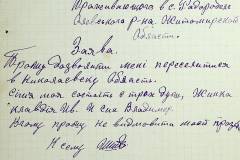 Проживающого в с. Городороб
Олевского р-на. Житомирской
Области.
Заява.
Прошу дозволити мені переселитися
в Николаевску Область.
Сімя моя состоіт с трох душ, Жинка
Клавдія Ив. И син Владимер.
В чому прошу не видмовити моей прозьби
К сему